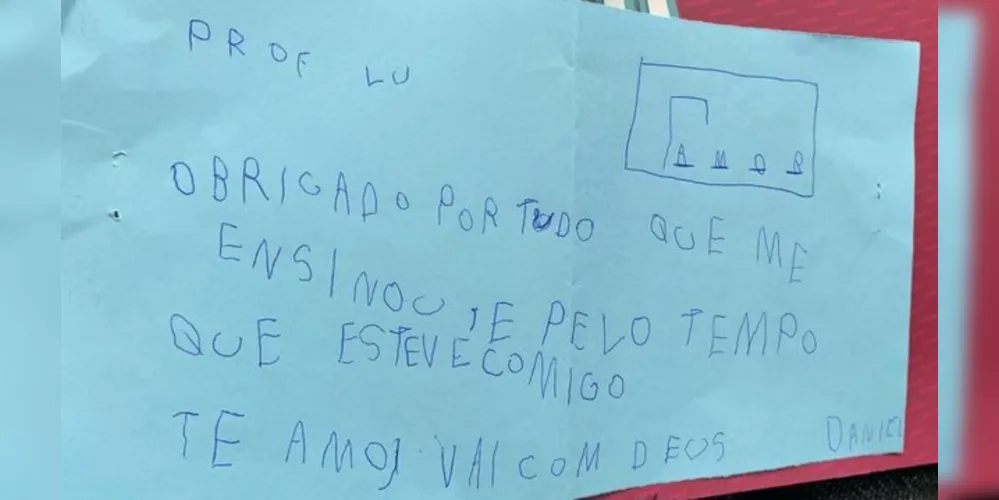 PROF LU
AMOR
OBRIGADO POR TUDO QUE ME
ENSINOU, E PELO TEMPO
QUE ESTEVE COMIGO
TE AMO, VAI COM DEUS
DANIEL